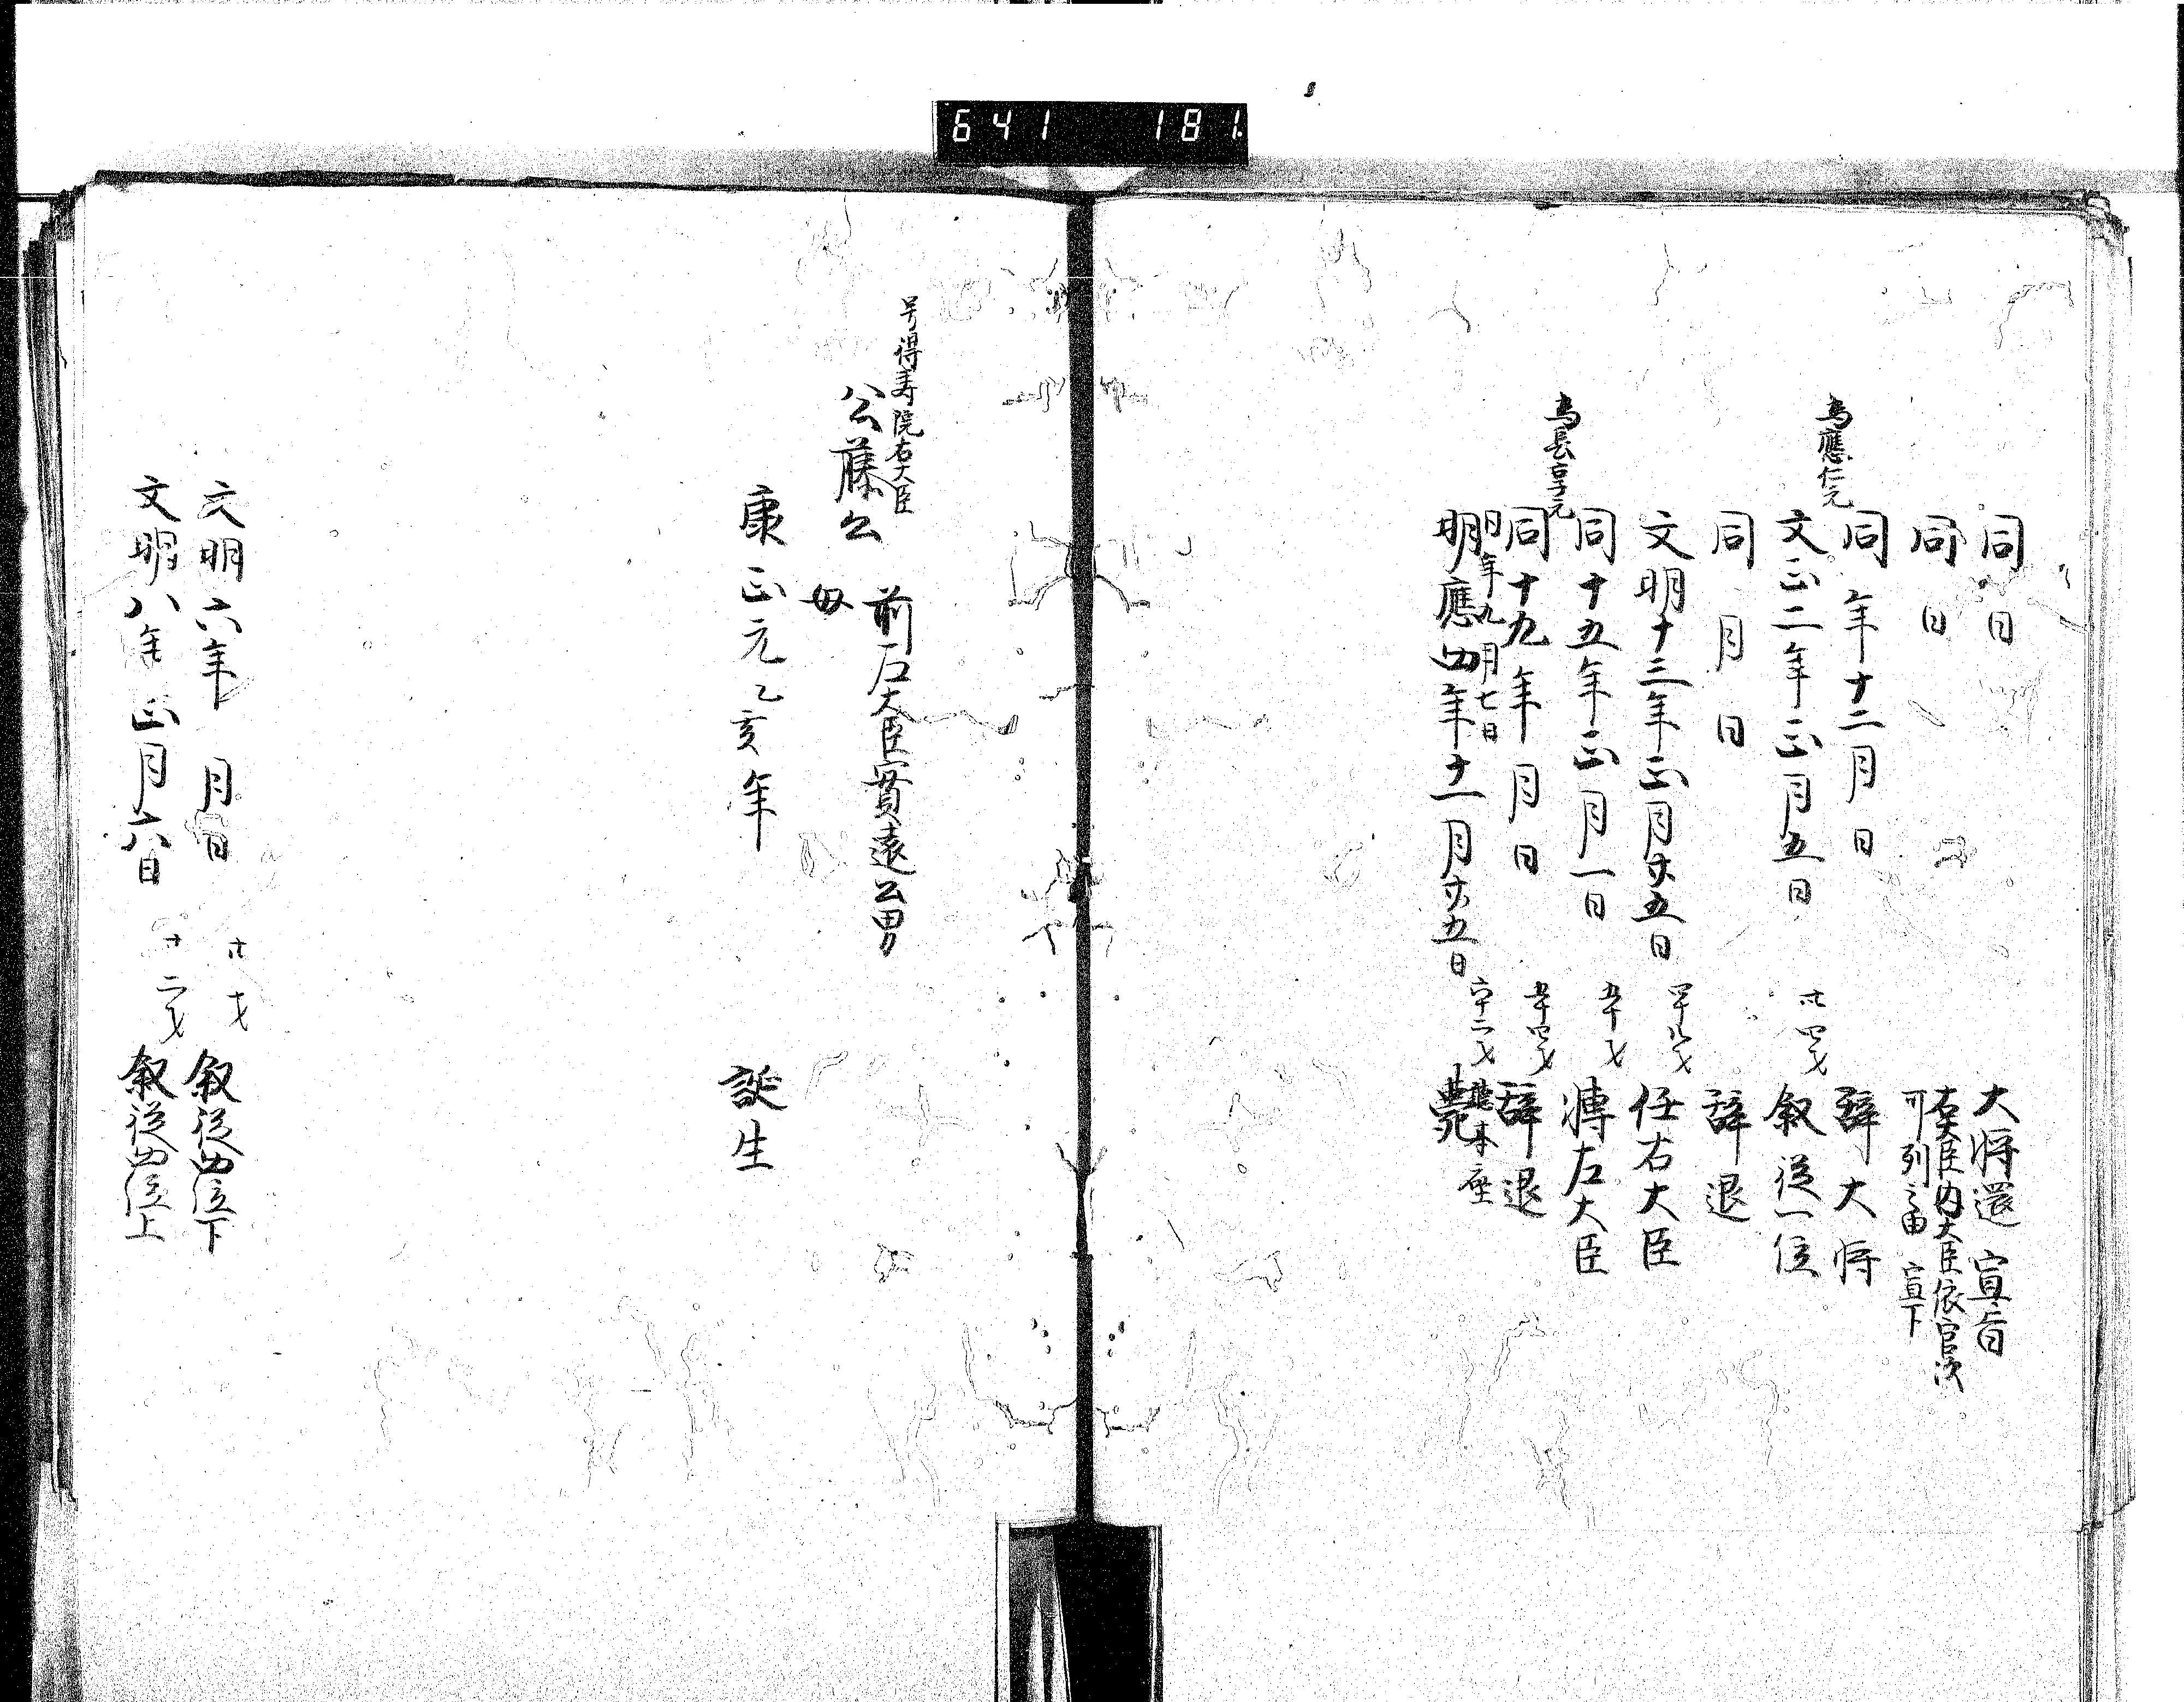 641 181
同日 大将還 宣旨
同日 右大臣内大臣依官次
可列之由 宣下
同年十二月 日 辞大将
為應仁元
文正二年正月五日 卅四才 叙従一位
同月日 辞退
文明十三年正月廿五日 四十八才 任右大臣
同十五年正月一日 五十才 轉左大臣
為長享元
同十九年 月 日 五十四才 辞退
同年九月七日 聴本座
明應四年十一月廿五日 六十二才 薨
号得寿院右大臣
公藤公 前左大臣實遠公男
母
康正元乙亥年 誕生
文明六年 月 日 叙従四位下
文明八年正月六日 叙従四位上